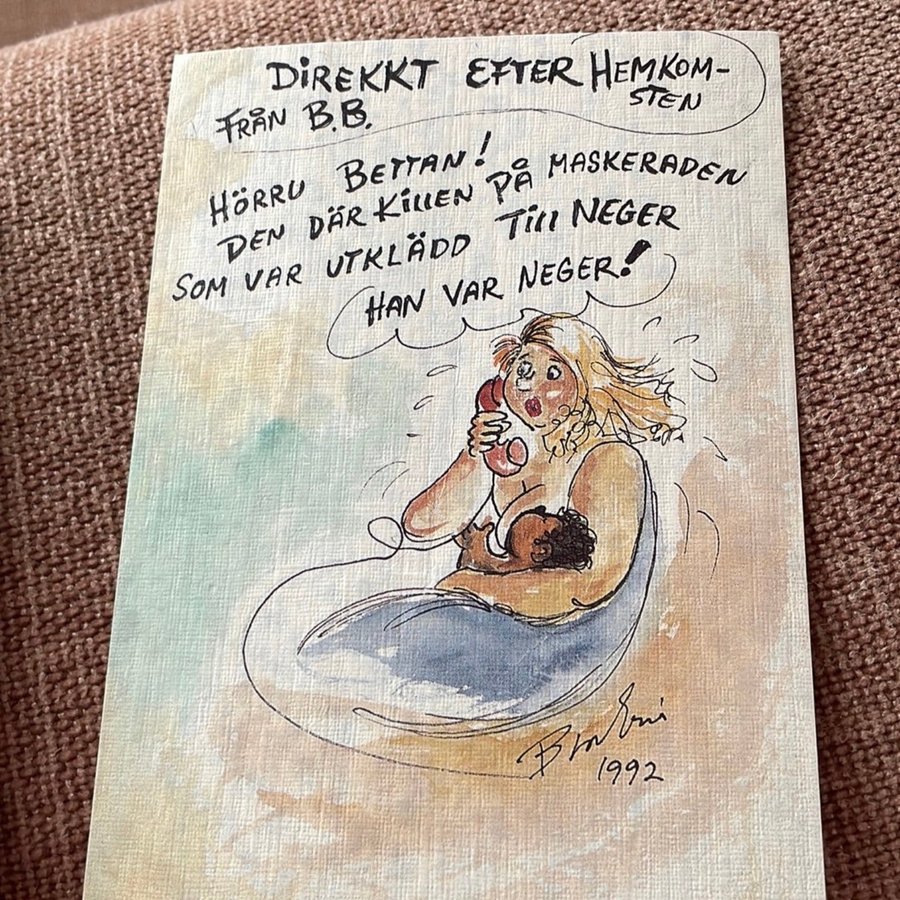 DIREKKT EFTER HEMKOM-
STEN
FRÅN B.B.
HÖRRU BETTAN!
DEN DÄR KILLEN PÅ MASKERADEN
SOM VAR UTKLÄDD TILL NEGER
HAN VAR NEGER!
1992